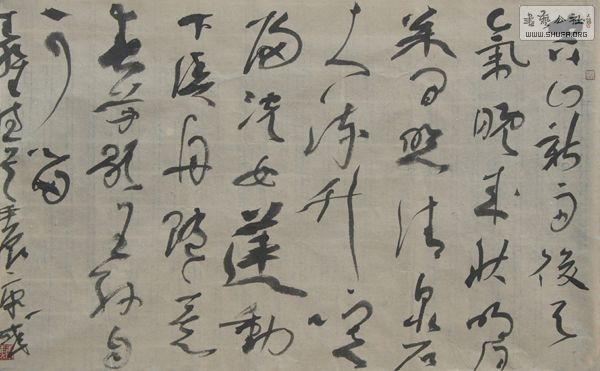 書藝公社
www.SHUFA.ORG
空山新雨後天
氣晚来秋明月
松間照清泉石
上流竹喧
歸浣女蓮動
下漁舟隨意
春芳歇王孫自
可留
王維詩壬辰